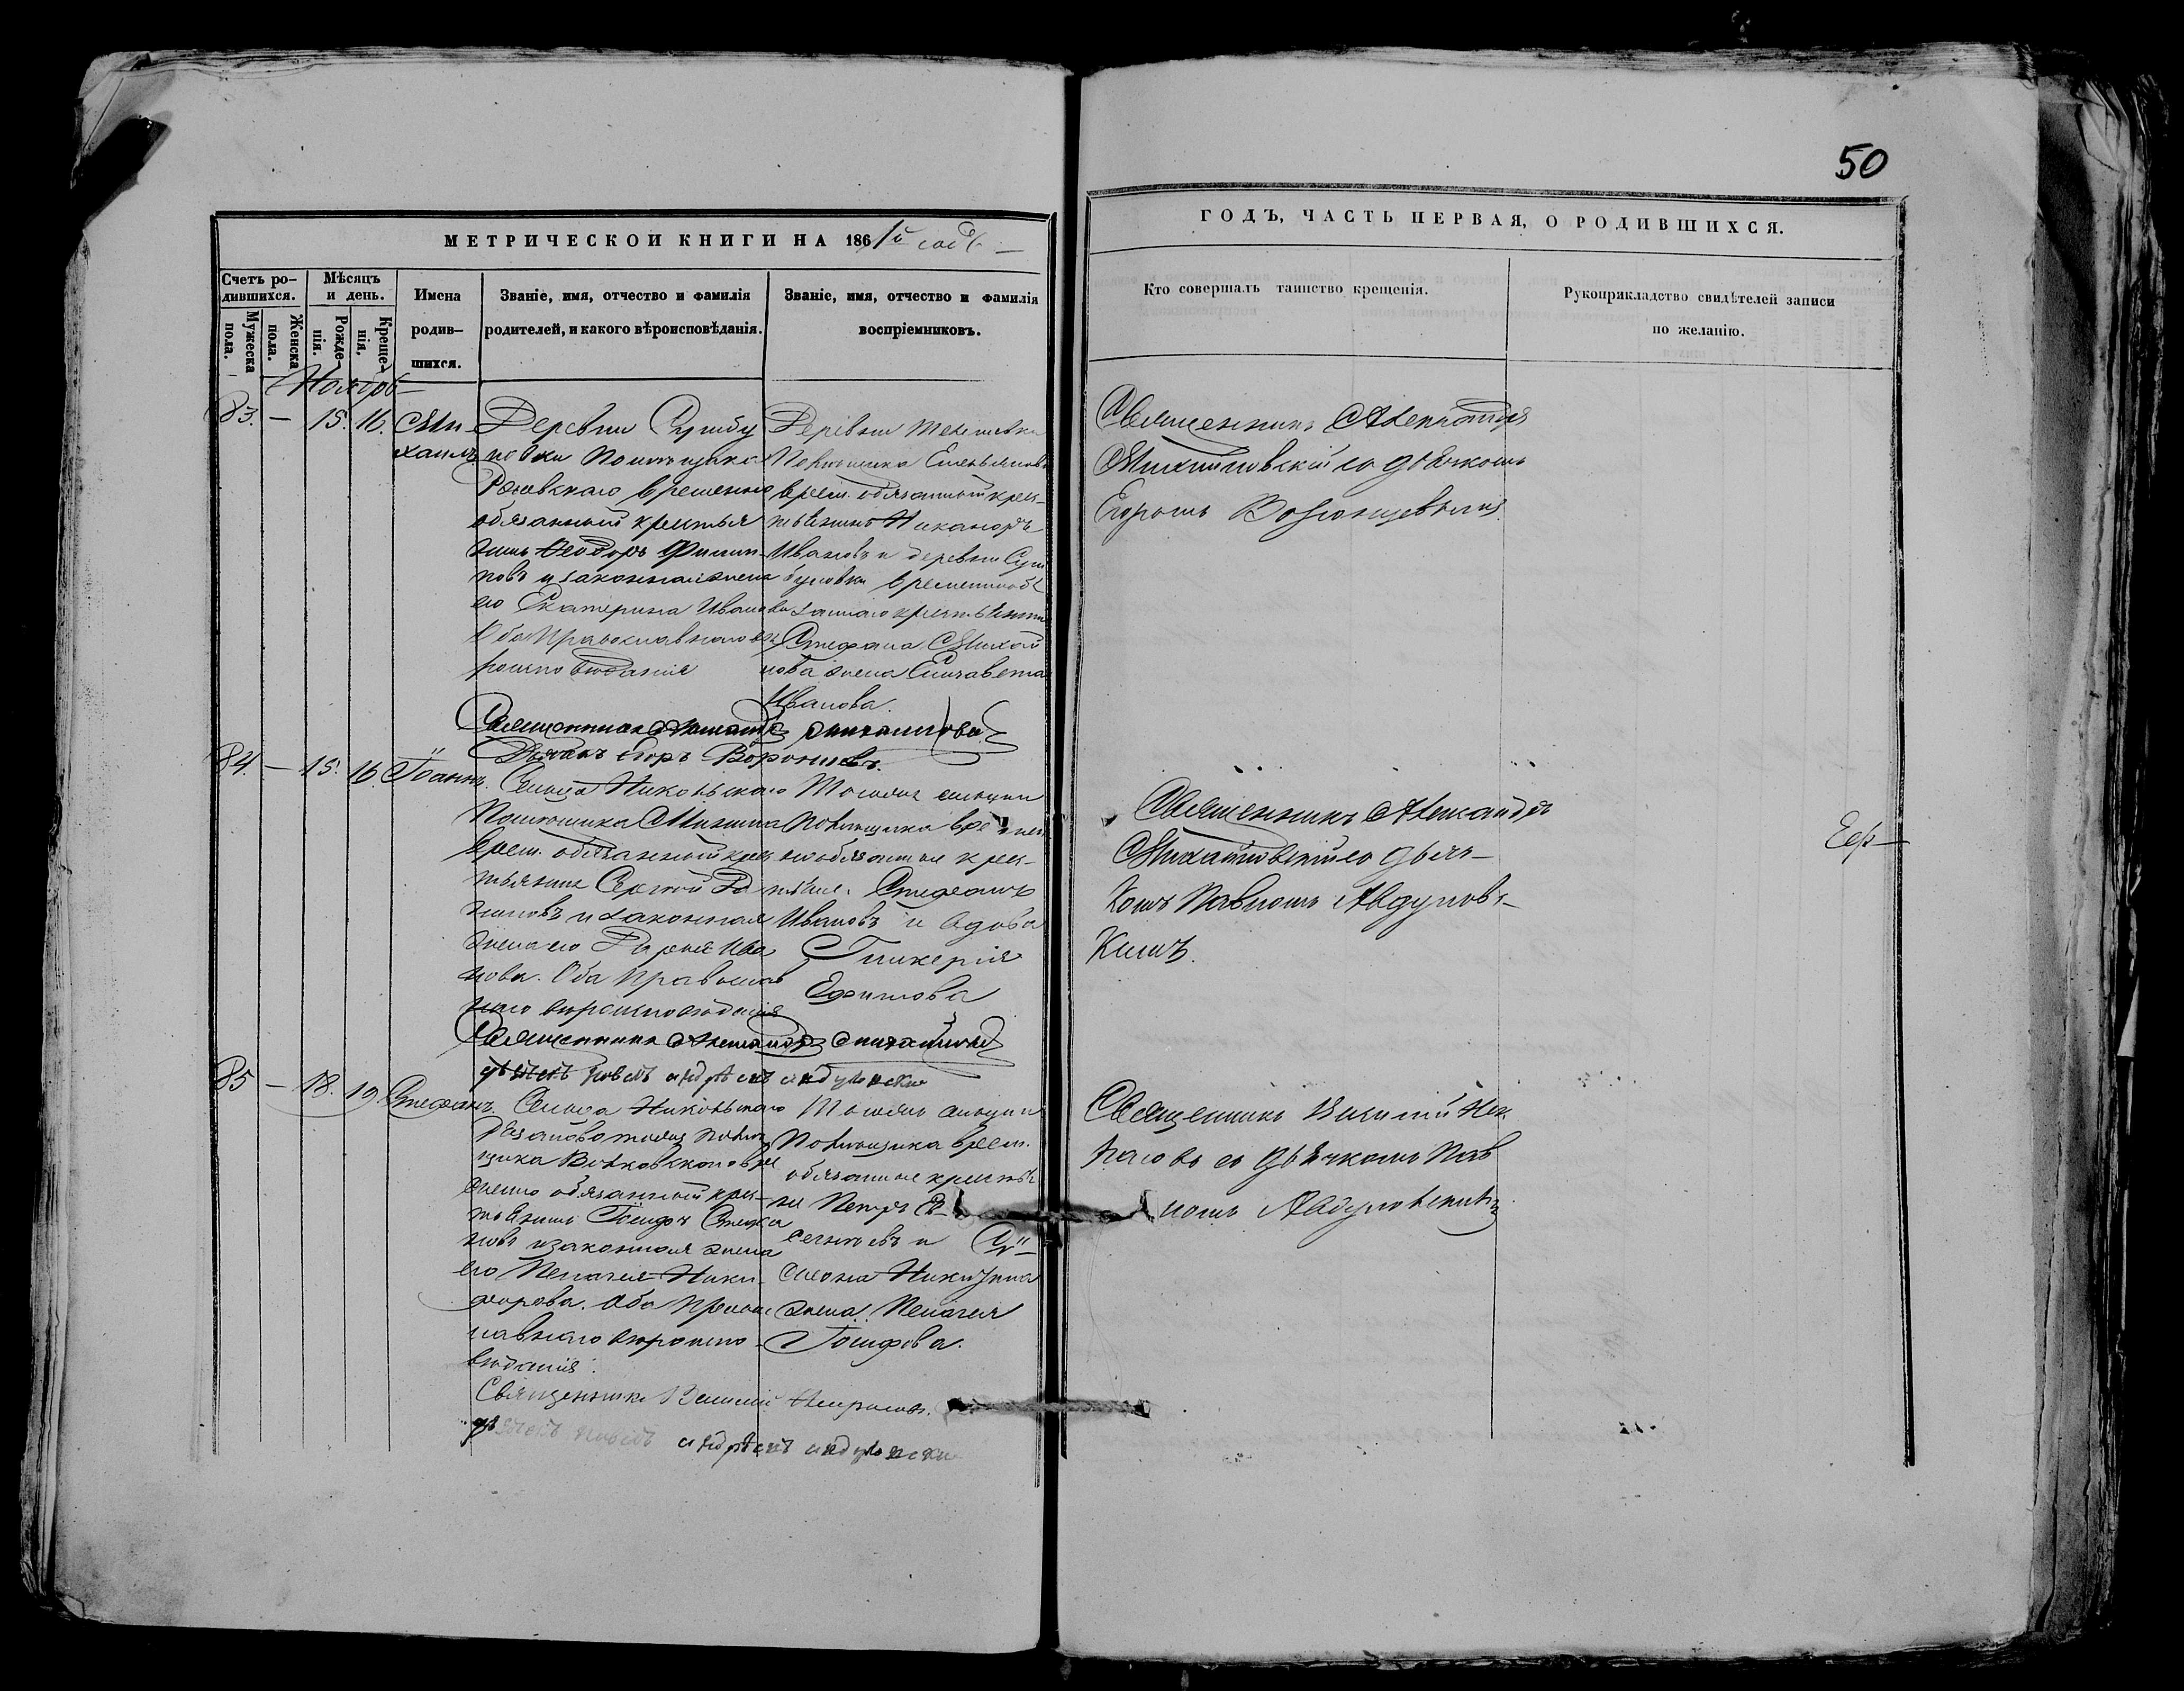 50
МЕТРИЧЕСКОЙ КНИГИ НА 1861й годъ
ГОДЪ, ЧАСТЬ ПЕРВАЯ, О РОДИВШИХСЯ.
Счетъ ро-
дившихся.
Мужеска
пола.
Женска
пола.
Мѣсяцъ
и день.
Рожде-
нія.
Креще-
нія.
Имена
родив-
шихся.
Званіе, имя, отчество и фамилія
родителей, и какого вѣроисповѣданія.
Званіе, имя, отчество и фамилія
воспріемниковъ.
Кто совершалъ таинство крещенія.
Рукоприкладство свидѣтелей записи
по желанію.
Ноябрь
83. — 15. 16. Ми-
хаилъ
Деревни Сумбу
ловки помѣщика
Ржевскаго временно
обязанный крестья
нинъ Ѳеодоръ Филип-
повъ и законная жена
его Екатерина Иванова
Оба православнаго вѣ
роисповѣданія
Деревни
помѣщика Емельянова
врем. обязанный крес-
тьянинъ Никаноръ
Ивановъ и деревни Сум
буловки временнообя
заннаго крестьянина
Стефана Михай
лова жена Елисавета
Иванова.
Священникъ Александръ
Михайловскій съ дьячкомъ
Егоромъ
Священникъ Александръ Михайловскій
Дьячекъ Егоръ
84. — 15. 16. Іоаннъ.
Сельца Никольскаго
помѣщика
врем. обязанный крес
тьянинъ Сергѣй Да
ниловъ и законная
жена его Дарья Ива
нова. Оба православ
наго вѣроисповѣданія
Тогожъ сельца и
помѣщика времен
нообязанные крес-
тьяне. Стефанъ
Ивановъ и вдова
Гликерія
Ефимова
Священникъ Александръ
Михайловскій съ дьяч-
комъ Павломъ Авдуловс-
кимъ.
Священникъ Александръ Михайловскій
дьячекъ Павелъ Андреевъ Авдуловскій
85 — 18. 19 Стефанъ.
Сельца Никольскаго
Рязаново тожъ помѣ
щика Волковскаго вре
менно обязанный крес-
тьянинъ Іосифъ Стефа
новъ и законная жена
его Пелагея Ники-
форова. Оба правос
лавнаго вѣроиспо-
вѣданія.
Тогожъ сельца и
помѣщика врем.
обязанные крестья
не Петръ
и Си-
меона Никитина
жена Пелагея
Іосифова.
Священникъ Василій Нек
расовъ съ дьячкомъ Пав
ломъ Авдуловскимъ
Священникъ Василій Некрасовъ.
дьячекъ Павелъ Андреевъ Авдуловскій